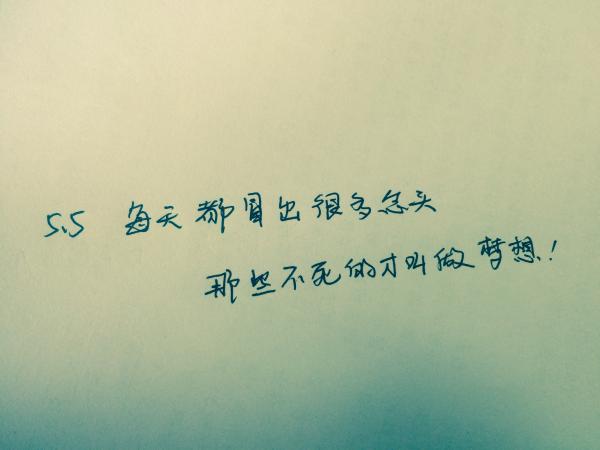 5.5 每天都冒出很多念头
那些不死的才叫做梦想!